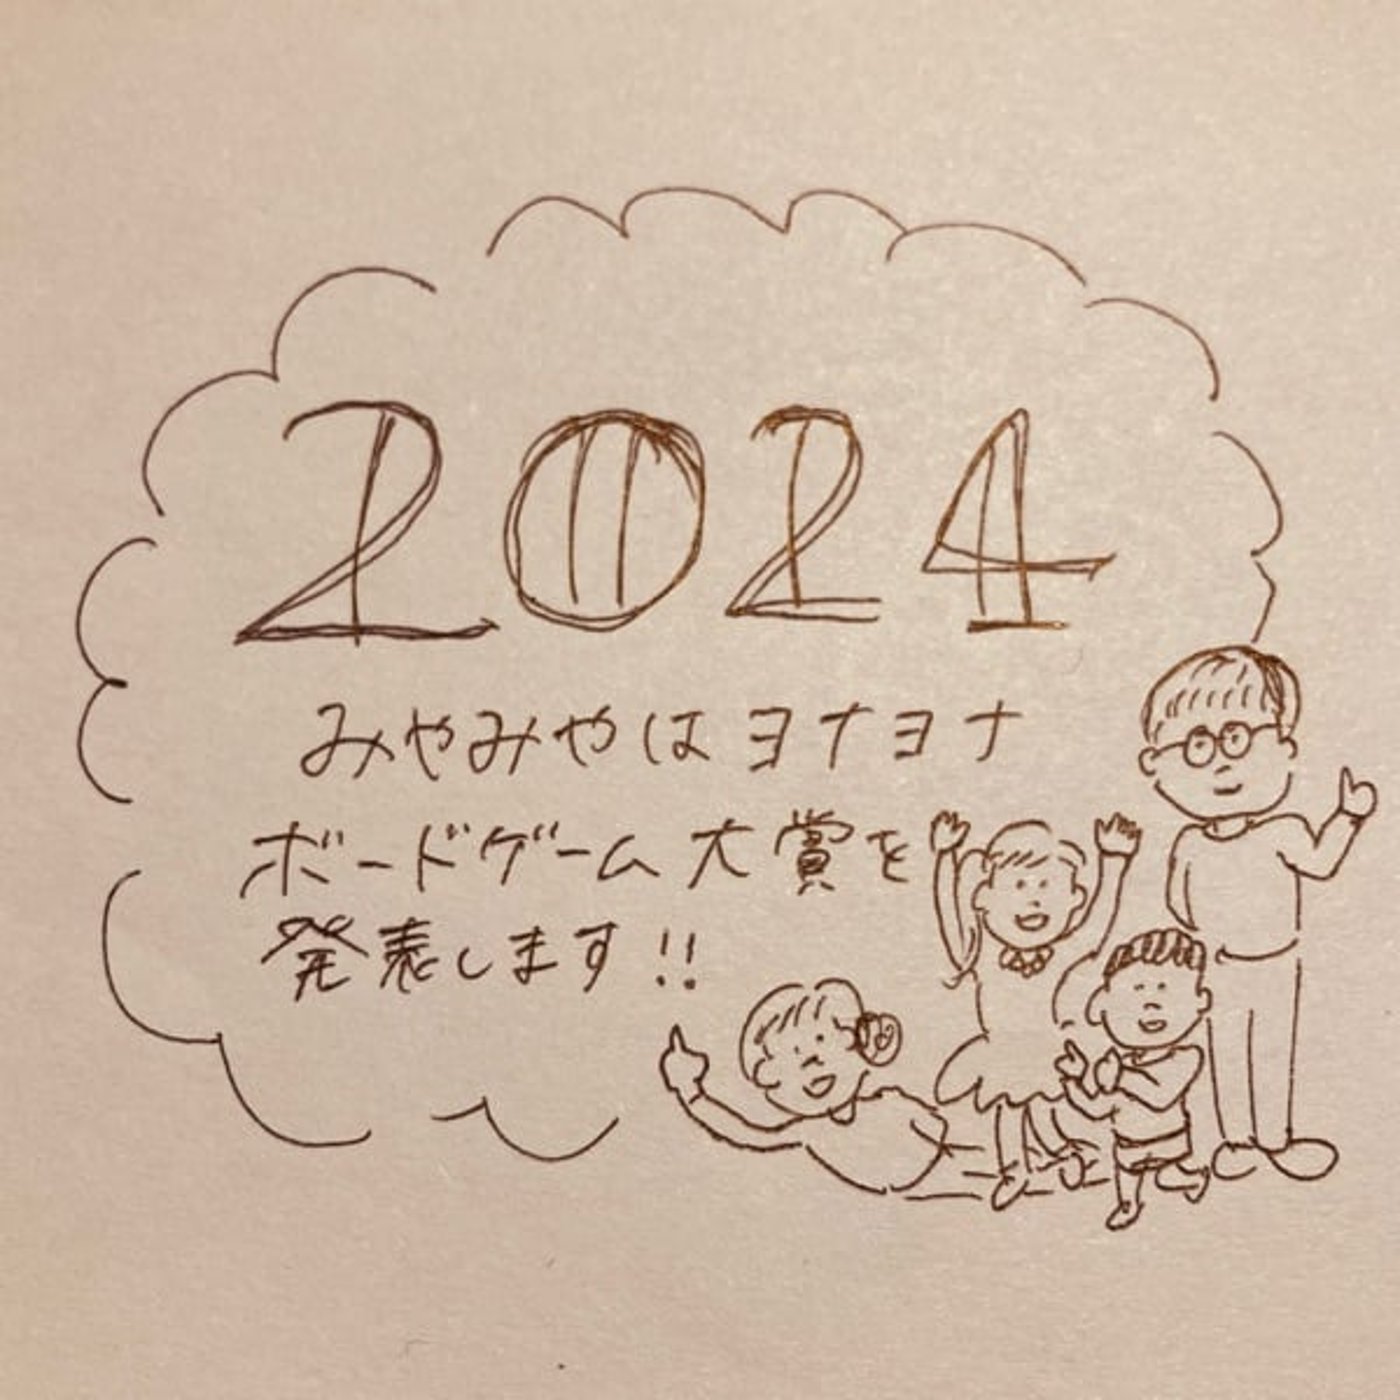 2024
みやみやは ヨナヨナ
ボードゲーム大賞を
発表します!!